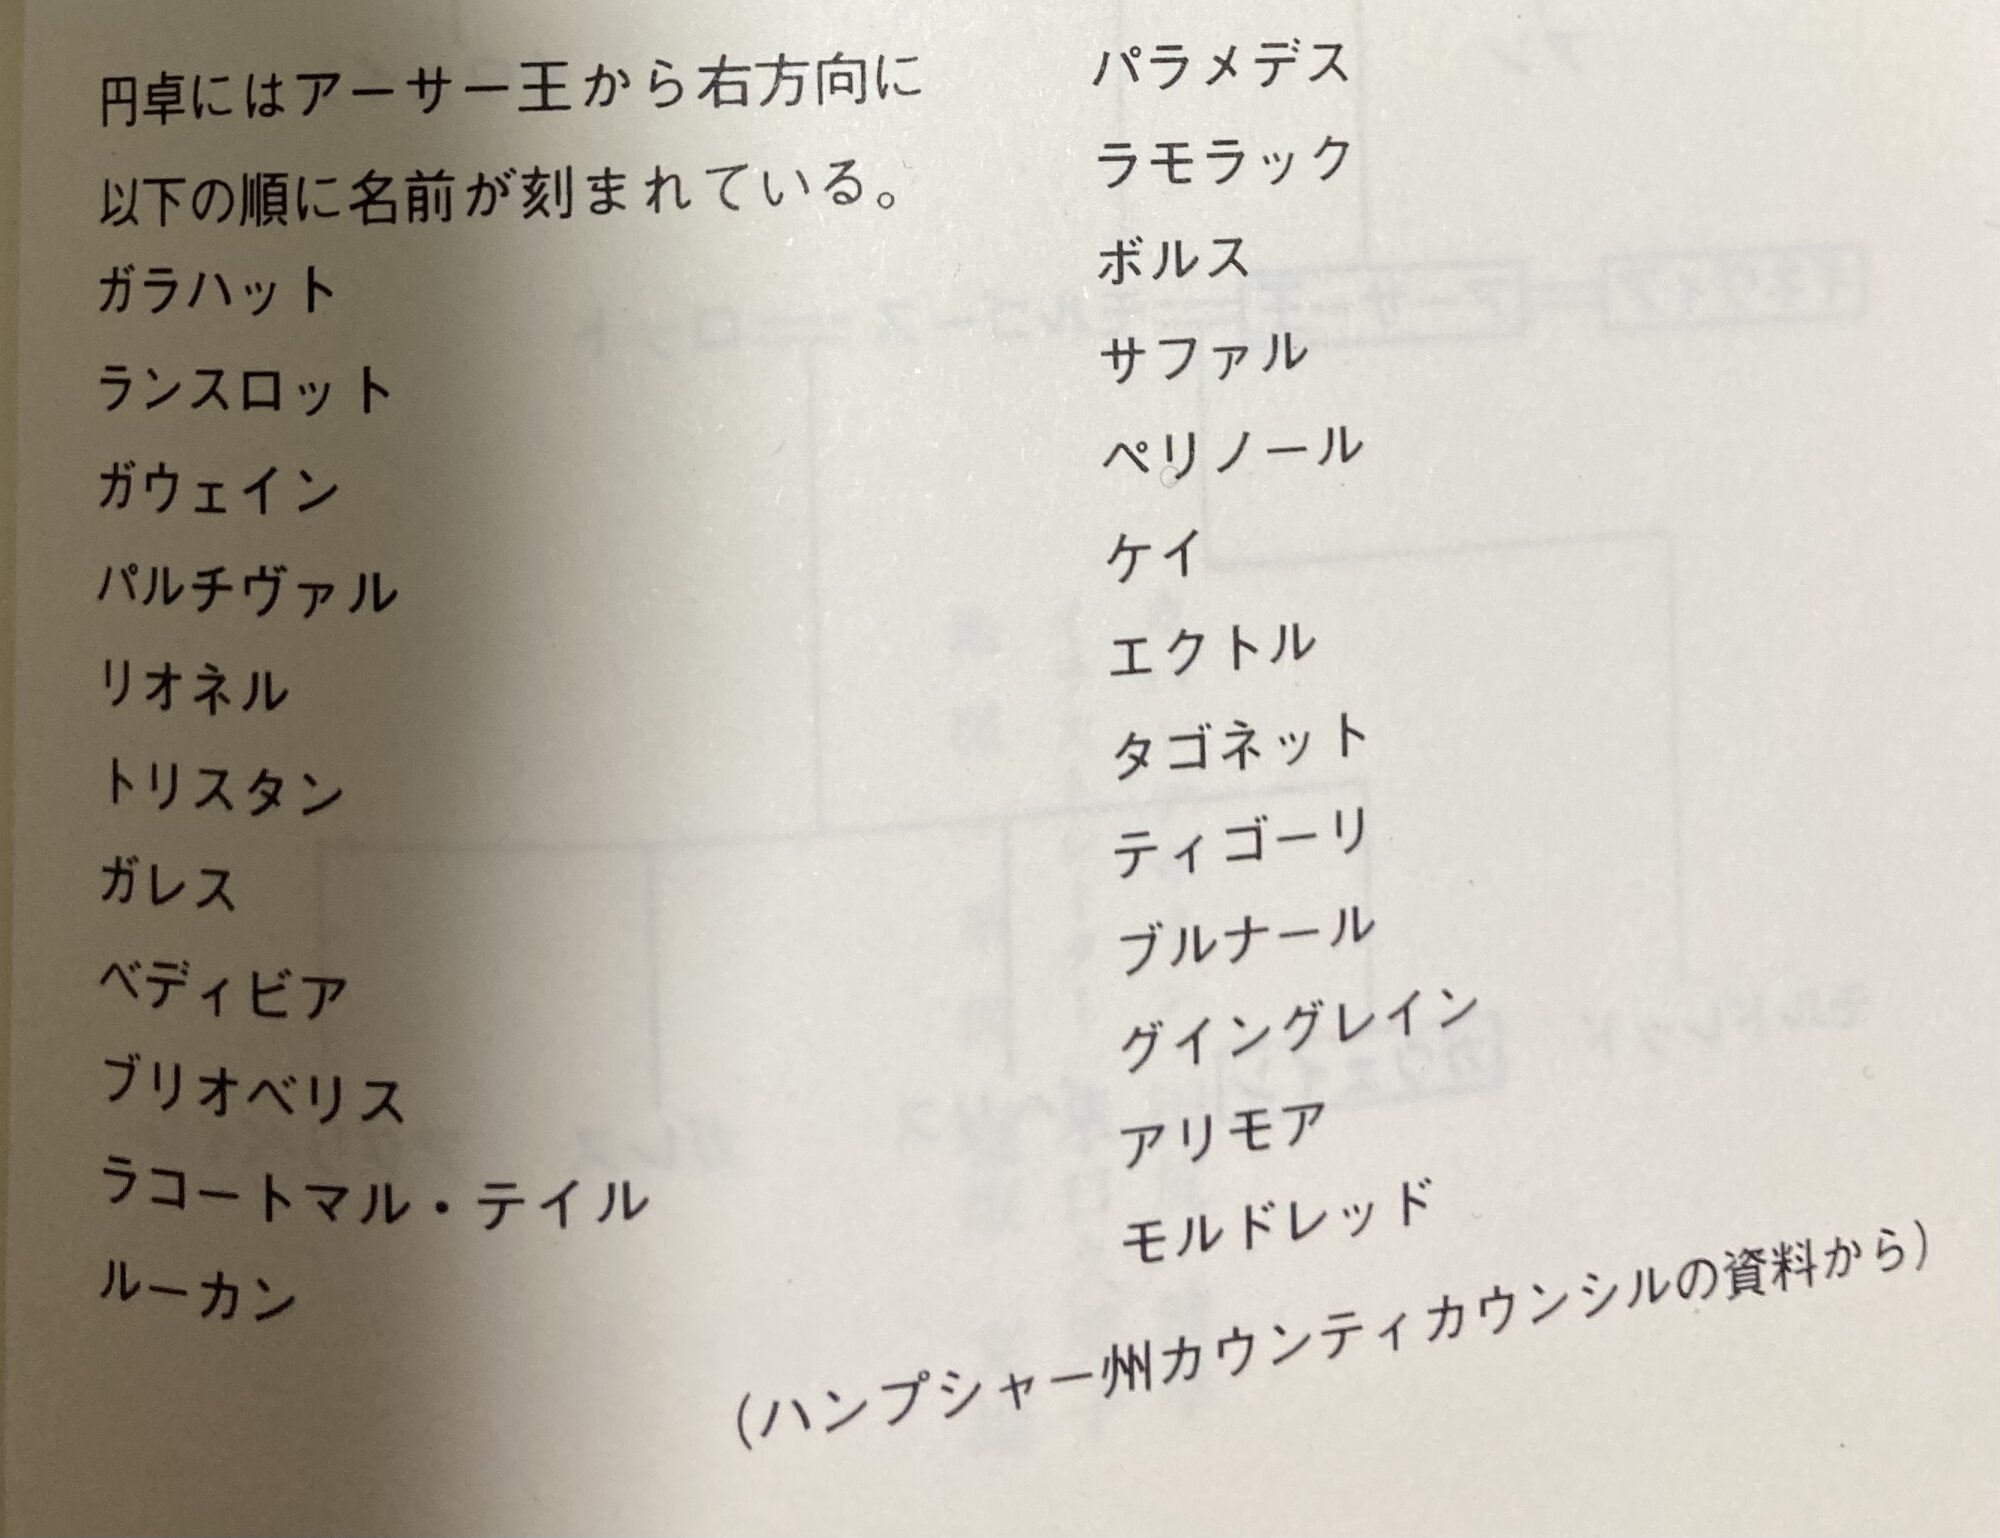 円卓にはアーサー王から右方向に
以下の順に名前が刻まれている。
ガラハット
ランスロット
ガウェイン
パルチヴァル
リオネル
トリスタン
ガレス
ベディビア
ブリオベリス
ラコートマル・テイル
ルーカン
パラメデス
ラモラック
ボルス
サファル
ペリノール
ケイ
エクトル
タゴネット
ティゴーリ
ブルナール
グイングレイン
アリモア
モルドレッド
(ハンプシャー州カウンティカウンシルの資料から)